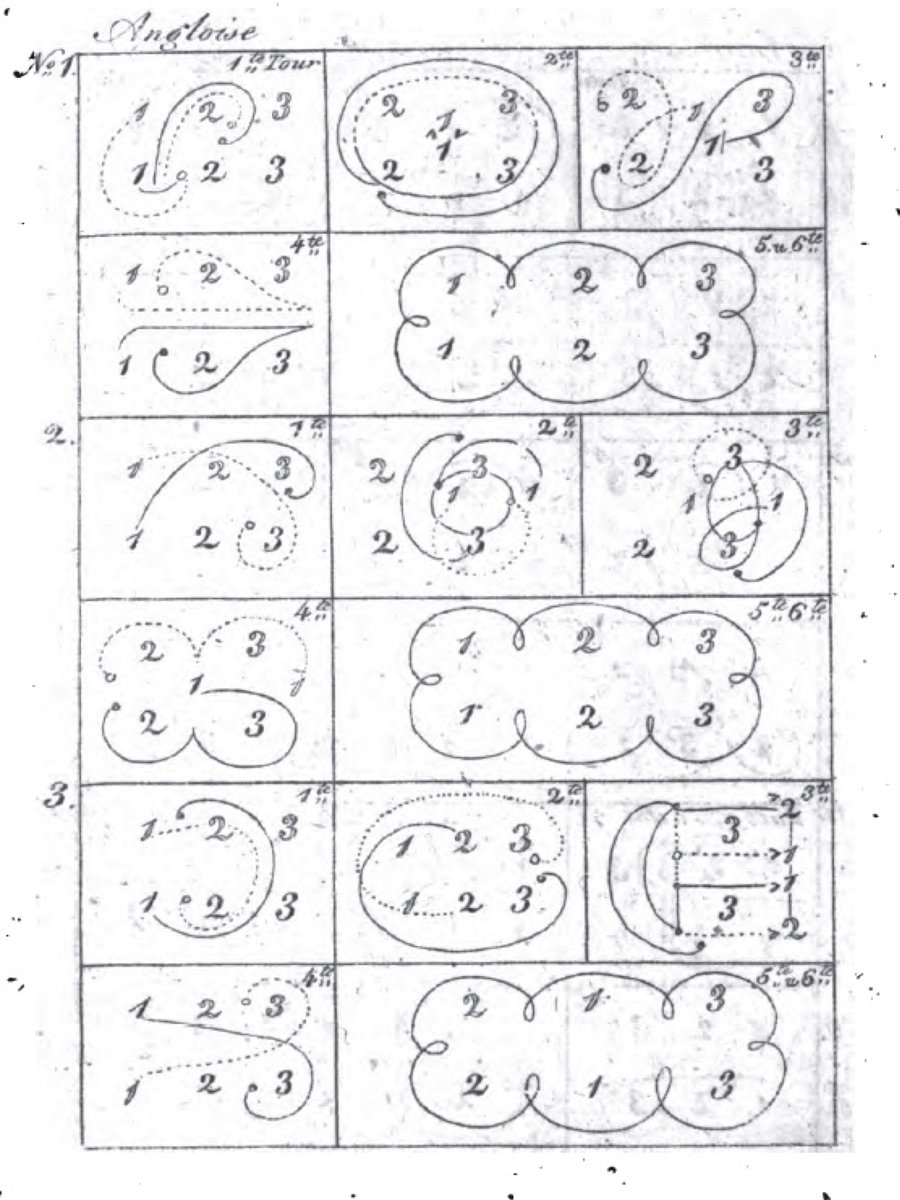 Angloise
No 1.
1te Tour
1 2 3
1 2 3
2te
2 3
1
1
2 3
3te
2 1 3
1
2 3
4te
1 2 3
1 2 3
5. u 6te
1 2 3
1 2 3
2.
1te
1 2 3
1 2 3
2te
2 3
1 1
2 3
3te
2 3
1 1
2 3
4te
2 3
1 1
2 3
5te 6te
1 2 3
1 2 3
3.
1te
1 2 3
1 2 3
2te
1 2 3
1 2 3
3te
2
3
1
1
3
2
4te
1 2 3
1 2 3
5te u 6te
2 1 3
2 1 3